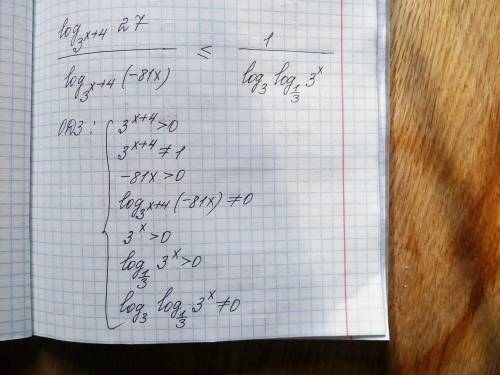 log_{3^{x+4}} 27 / log_{3^{x+4}} (-81x) ≤ 1 / log_3 log_{1/3} 3^x
ОДЗ: { 3^{x+4} > 0
3^{x+4} ≠ 1
-81x > 0
log_{3^{x+4}} (-81x) ≠ 0
3^x > 0
log_{1/3} 3^x > 0
log_3 log_{1/3} 3^x ≠ 0